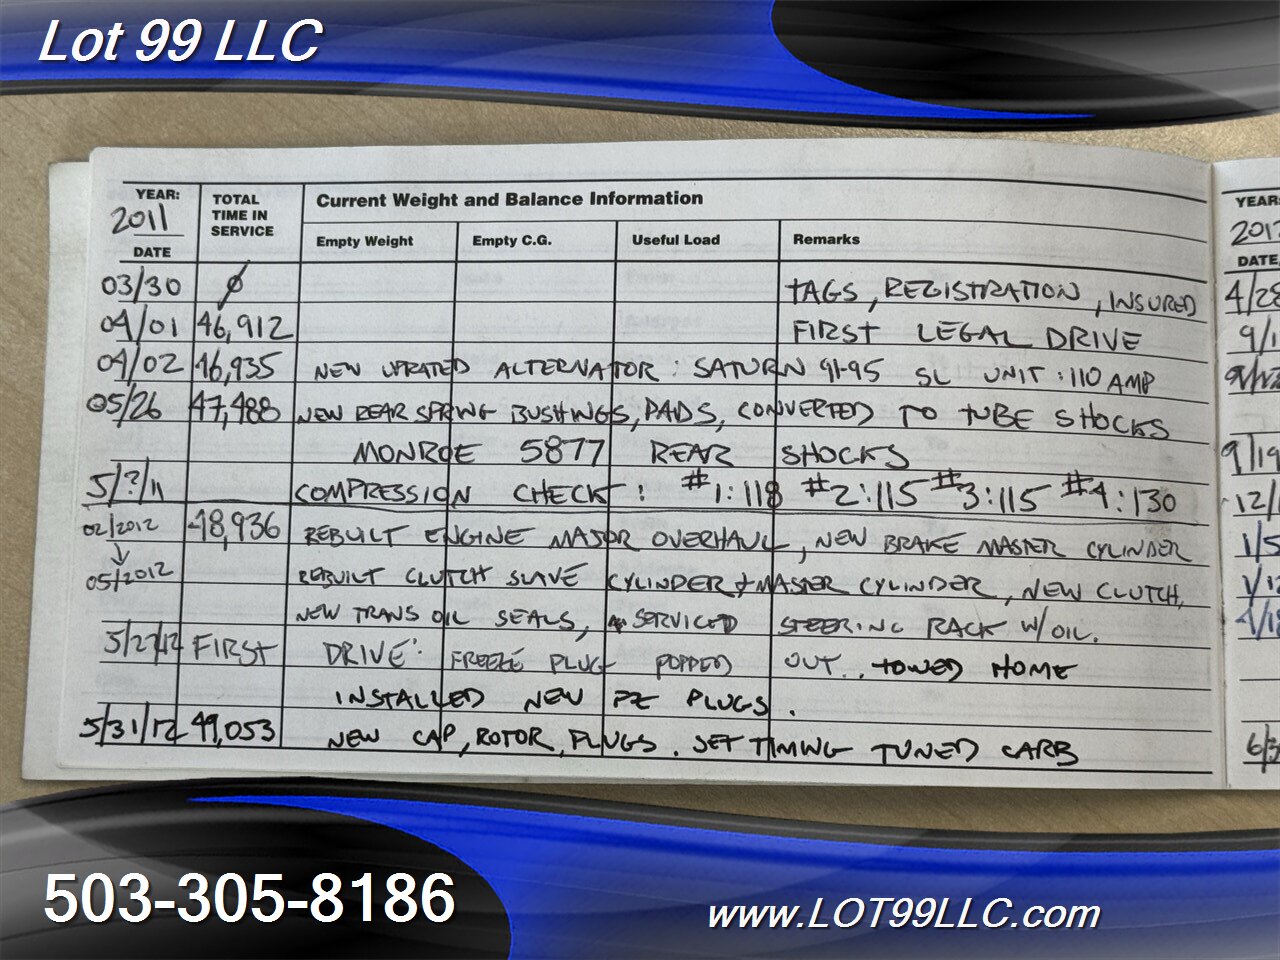 Lot 99 LLC
YEAR: TOTAL TIME IN SERVICE Current Weight and Balance Information
2011
DATE Empty Weight Empty C.G. Useful Load Remarks
03/30 Ø TAGS, REGISTRATION, INSURED
04/01 46,912 FIRST LEGAL DRIVE
04/02 46,935 NEW UPRATED ALTERNATOR: SATURN 91-95 SL UNIT: 110 AMP
05/26 47,488 NEW REAR SPRING BUSHINGS, PADS, CONVERTED TO TUBE SHOCKS
MONROE 5877 REAR SHOCKS
5/?/11 COMPRESSION CHECK: #1:118 #2:115 #3:115 #4:130
02/2012 48,936 REBUILT ENGINE MAJOR OVERHAUL, NEW BRAKE MASTER CYLINDER
↓
05/2012 REBUILT CLUTCH SLAVE CYLINDER + MASTER CYLINDER, NEW CLUTCH,
NEW TRANS OIL SEALS, SERVICED STEERING RACK W/OIL.
5/27/12 FIRST DRIVE: FREEZE PLUG POPPED OUT.. TOWED HOME
INSTALLED NEW FZ PLUGS.
5/31/12 49,053 NEW CAP, ROTOR, PLUGS. SET TIMING TUNED CARB
YEAR:
DATE
4/28
9/1
9/19
12/1
1/5
1/12
4/18
6/3
503-305-8186
www.LOT99LLC.com